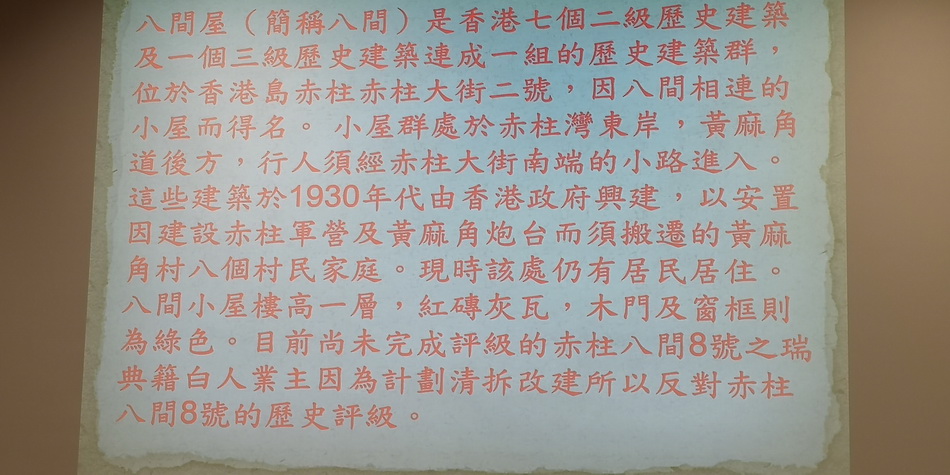 八間屋（簡稱八間）是香港七個二級歷史建築
及一個三級歷史建築連成一組的歷史建築群，
位於香港島赤柱赤柱大街二號，因八間相連的
小屋而得名。 小屋群處於赤柱灣東岸，黃麻角
道後方，行人須經赤柱大街南端的小路進入。
這些建築於1930年代由香港政府興建，以安置
因建設赤柱軍營及黃麻角炮台而須搬遷的黃麻
角村八個村民家庭。現時該處仍有居民居住。
八間小屋樓高一層，紅磚灰瓦，木門及窗框則
為綠色。目前尚未完成評級的赤柱八間8號之瑞
典籍白人業主因為計劃清拆改建所以反對赤柱
八間8號的歷史評級。